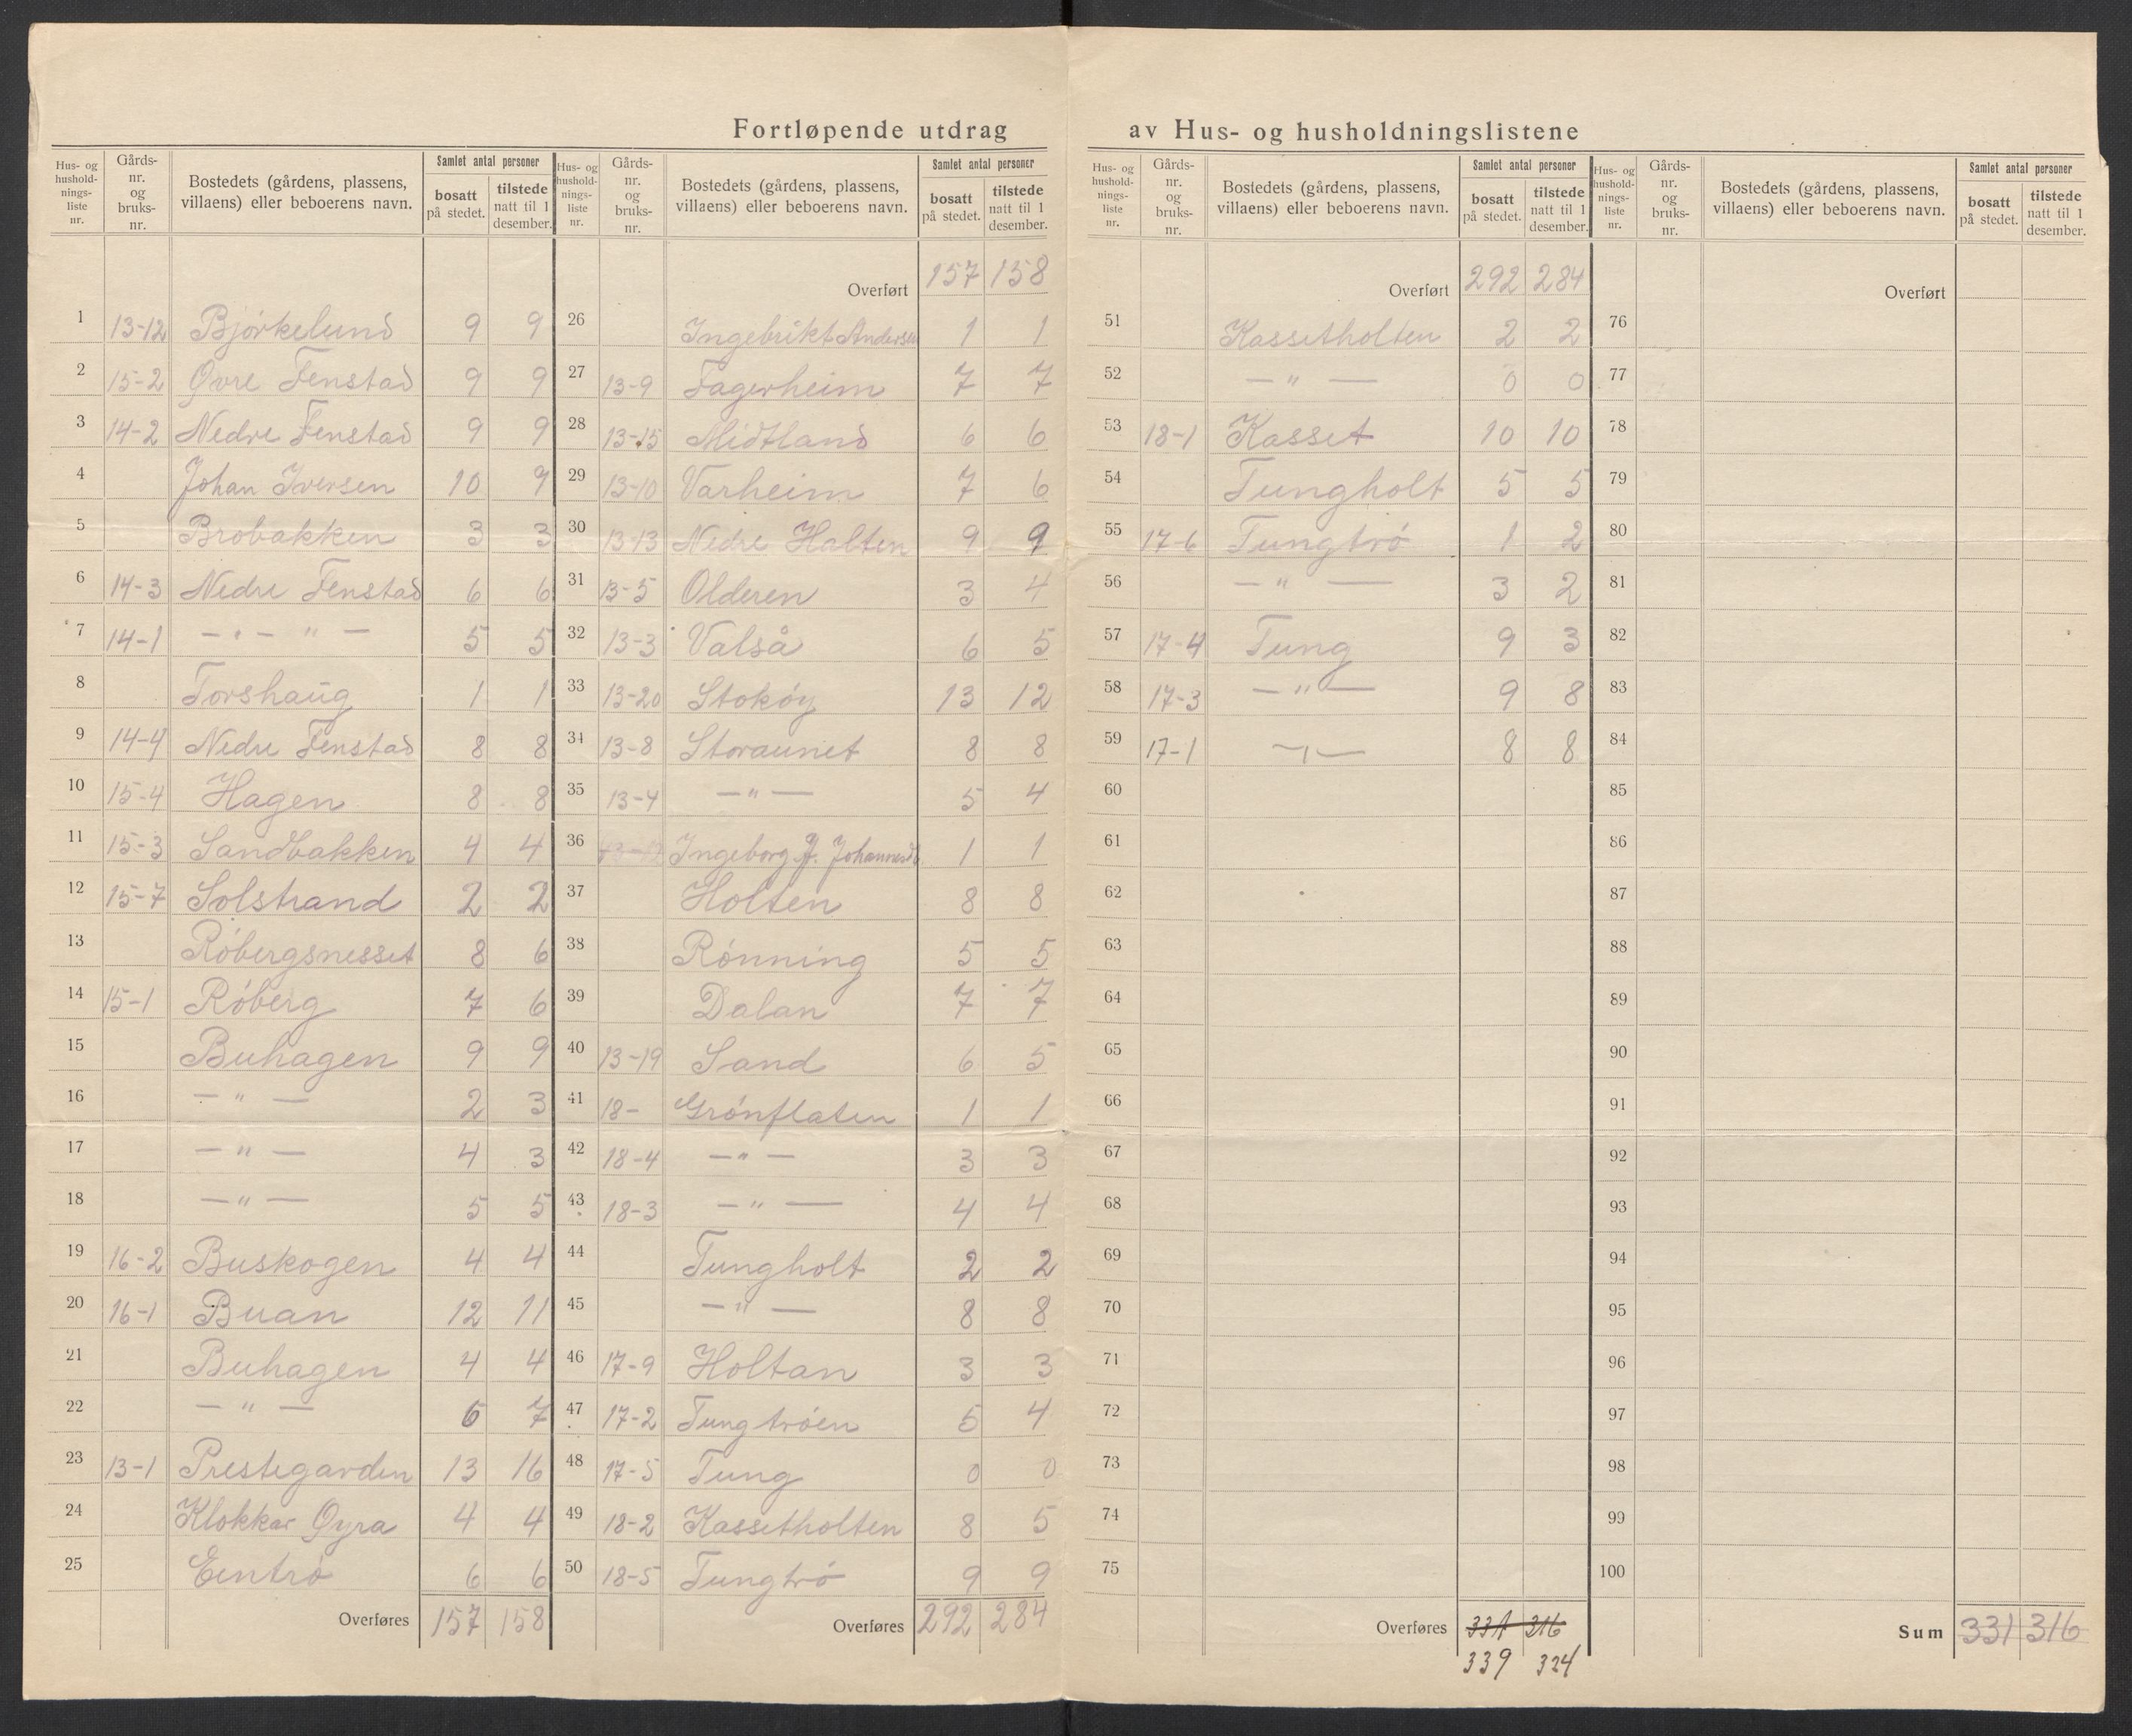 Fortløpende utdrag av Hus- og husholdningslistene
Hus- og husholdnings-liste nr. | Gårds-nr. og bruks-nr. | Bostedets (gårdens, plassens, villaens) eller beboerens navn. | Samlet antal personer | bosatt på stedet. | tilstede natt til 1 desember.
1 13-12 Bjørkelund 9 9
2 15-2 Øvre Fenstad 9 9
3 14-2 Nedre Fenstad 9 9
4 Johan Iversen 10 9
5 Brobakken 3 3
6 14-3 Nedre Fenstad 6 6
7 14-1 — " — " — 5 5
8 Torshaug 1 1
9 14-4 Nedre Fenstad 8 8
10 15-4 Hagen 8 8
11 15-3 Sandbakken 4 4
12 15-7 Solstrand 2 2
13 Røbergsnesset 8 6
14 15-1 Røberg 7 6
15 Buhagen 9 9
16 — " — 2 3
17 — " — 4 3
18 — " — 5 5
19 16-2 Buskogen 4 4
20 16-1 Buan 12 11
21 Buhagen 4 4
22 — " — 6 7
23 13-1 Prestegarden 13 16
24 Klokkar Øyra 4 4
25 Eentrø 6 6
Overføres 157 158
Hus- og husholdnings-liste nr. | Gårds-nr. og bruks-nr. | Bostedets (gårdens, plassens, villaens) eller beboerens navn. | Samlet antal personer | bosatt på stedet. | tilstede natt til 1 desember.
Overført 157 158
26 Ingebrikt Andersen 1 1
27 13-9 Fagerheim 7 7
28 13-15 Midtland 6 6
29 13-10 Varheim 7 6
30 13-13 Nedre Halten 9 9
31 13-5 Olderen 3 4
32 13-3 Valså 6 5
33 13-20 Stokøy 13 12
34 13-8 Storaunet 8 8
35 13-4 — " — 5 4
36 Ingeborg J. 1 1
37 Holten 8 8
38 Rønning 5 5
39 Dalan 7 7
40 13-19 Sand 6 5
41 18- Grønflaten 1 1
42 18-4 — " — 3 3
43 18-3 — " — 4 4
44 Tungholt 2 2
45 — " — 8 8
46 17-9 Holtan 3 3
47 17-2 Tungtrøen 5 4
48 17-5 Tung 0 0
49 18-2 Kassetholten 8 5
50 18-5 Tungtrø 9 9
Overføres 292 284
Hus- og husholdnings-liste nr. | Gårds-nr. og bruks-nr. | Bostedets (gårdens, plassens, villaens) eller beboerens navn. | Samlet antal personer | bosatt på stedet. | tilstede natt til 1 desember.
Overført 292 284
51 Kassetholten 2 2
52 — " — 0 0
53 18-1 Kasset 10 10
54 Tungholt 5 5
55 17-6 Tungtrø 1 2
56 — " — 3 2
57 17-4 Tung 9 3
58 17-3 — " — 9 8
59 17-1 — " — 8 8
60
61
62
63
64
65
66
67
68
69
70
71
72
73
74
75
Overføres 331 316
339 324
Hus- og husholdnings-liste nr. | Gårds-nr. og bruks-nr. | Bostedets (gårdens, plassens, villaens) eller beboerens navn. | Samlet antal personer | bosatt på stedet. | tilstede natt til 1 desember.
Overført
76
77
78
79
80
81
82
83
84
85
86
87
88
89
90
91
92
93
94
95
96
97
98
99
100
Sum 331 316